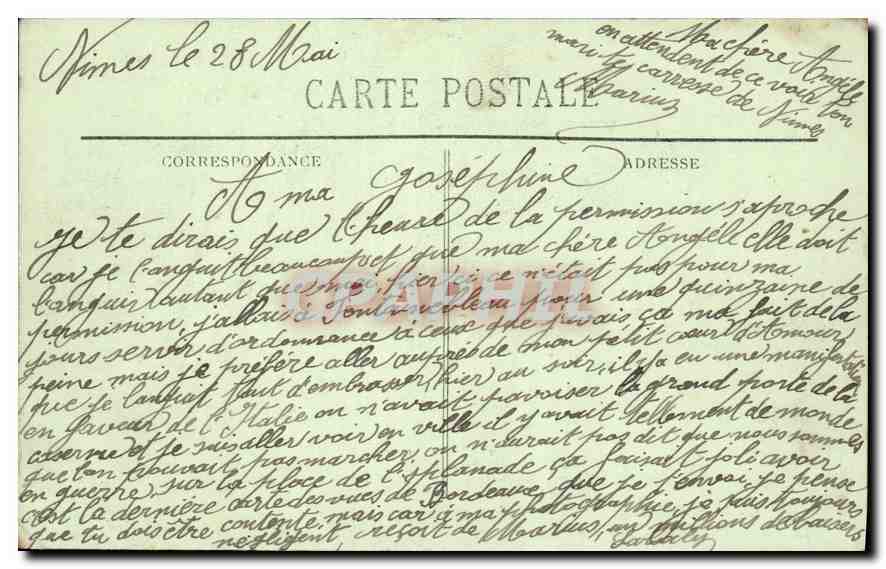 Nimes le 28 Mai
Ma chère Angèle
en attendent de ce voir ton
mari te carresse de Nimes
Marius
CARTE POSTALE
CORRESPONDANCE
ADRESSE
A ma Joséphine
Je te dirais que l'heure de la permission s'aproche
car je languit beaucoup et que ma chère Angèle elle doit
languir autant que moi, hier si ce n'était pas pour ma
permission, j'allais à Fontainebleau pour une quinzaine de
jours servir d'ordonnance à ceux que ça ma fait de la
peine mais je préfère aller auprès de mon petit cœur d'Amour,
que je languit tant d'embrasser, hier au soir, il y a eu une manifestation
en faveur de l'Italie on n'avait pavoiser la grand porte de la
caserne et je suis aller voir en ville il y avait tellement de monde
que l'on pouvait pas marcher, on n'aurait pas dit que nous sommes
en guerre, sur la place de l'Esplanade ça faisait joli a voir
c'est la dernière carte des vues de Bordeaux que je t'envoi, je pense
que tu dois être contente, mais car à ma photographie, je suis toujours
négligent, reçoit de Marius, un millions de baisers